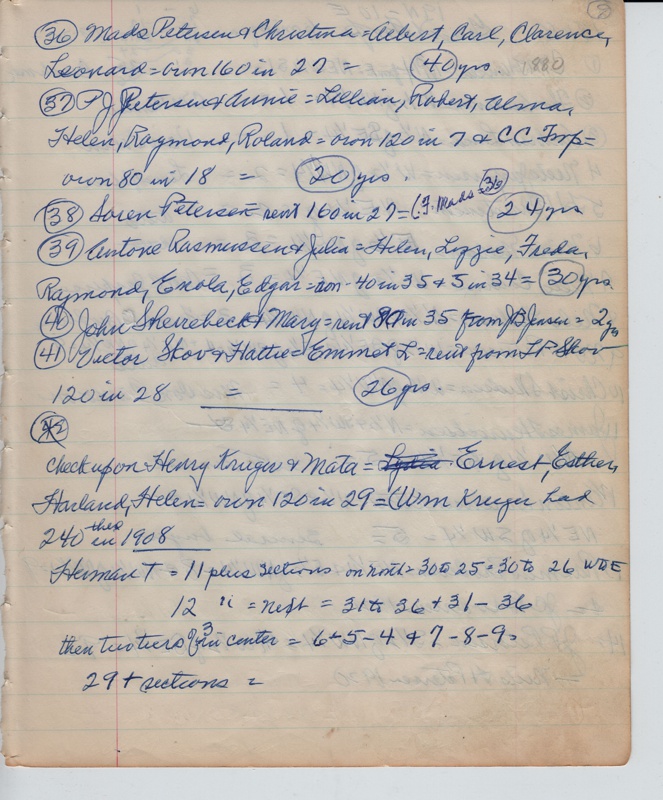 9
36 Mads Petersen & Christina = Albert, Carl, Clarence,
Leonard = own 160 in 27 = 40 yrs. 1880
37 P J Petersen & Annie = Lillian, Robert, Alma,
Helen, Raymond, Roland = own 120 in 7 & CC Imp =
own 80 in 18 = 20 yrs.
38 Soren Petersen = rent 160 in 27 = (F. Mads = 24 yrs
39 Antone Rasmussen & Julia = Helen, Lizzie, Freda,
Raymond, Enola, Edgar = own - 40 in 35 & 5 in 34 = 30 yrs.
40 John & Mary = rent in 35 from JB Jensen = 2 yrs
41 Victor Skov & Hattie = Emmet L = rent from Skov
120 in 28 = 26 yrs.
42
Check upon Henry Kruger & Mata = Lydia. Ernest, Esther,
Harland, Helen = own 120 in 29 = (Wm Kreuger had
240 in 1908
Herman T = 11 plus sections on north = 30 to 25 = 30 to 26 W to E
12 " = next = 31 to 36 + 31 - 36
then two tiers of 3 in center = 6 + 5 - 4 + 7 - 8 - 9 =
29 + sections =